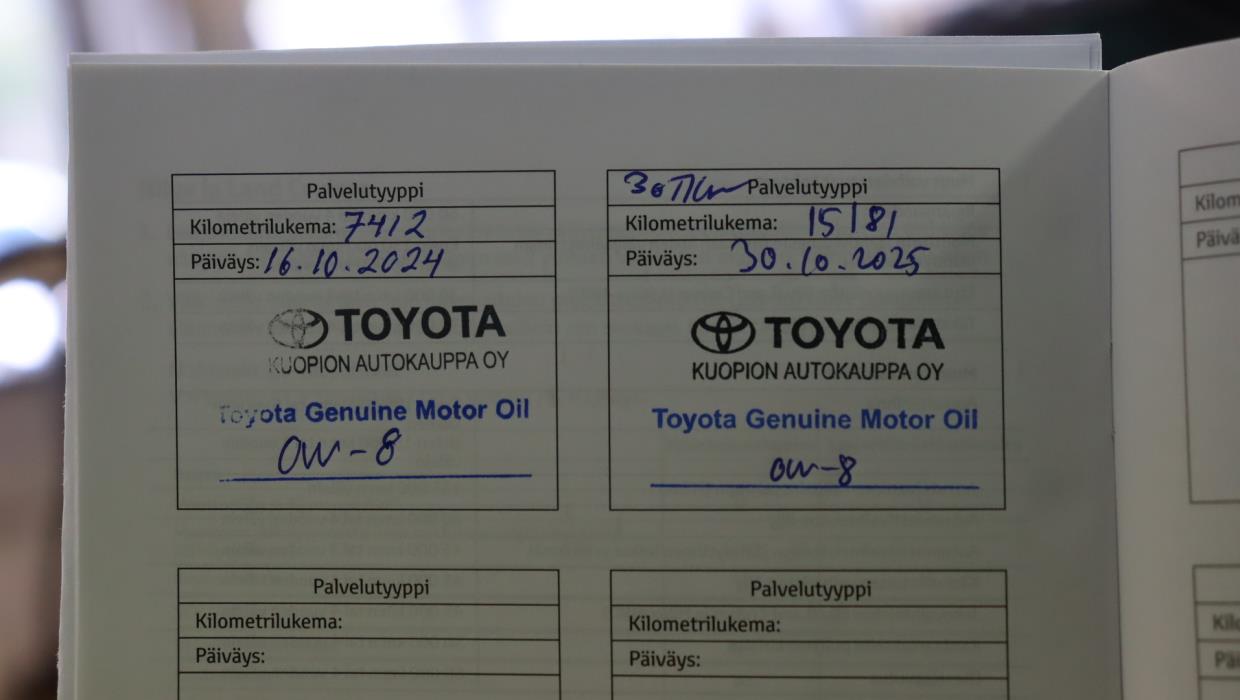 Palvelutyyppi
Kilometrilukema: 7412
Päiväys: 16.10.2024
TOYOTA
KUOPION AUTOKAUPPA OY
Toyota Genuine Motor Oil
0W-8
30TKm Palvelutyyppi
Kilometrilukema: 15181
Päiväys: 30.10.2025
TOYOTA
KUOPION AUTOKAUPPA OY
Toyota Genuine Motor Oil
0W-8
Palvelutyyppi
Kilometrilukema:
Päiväys:
Palvelutyyppi
Kilometrilukema:
Päiväys: